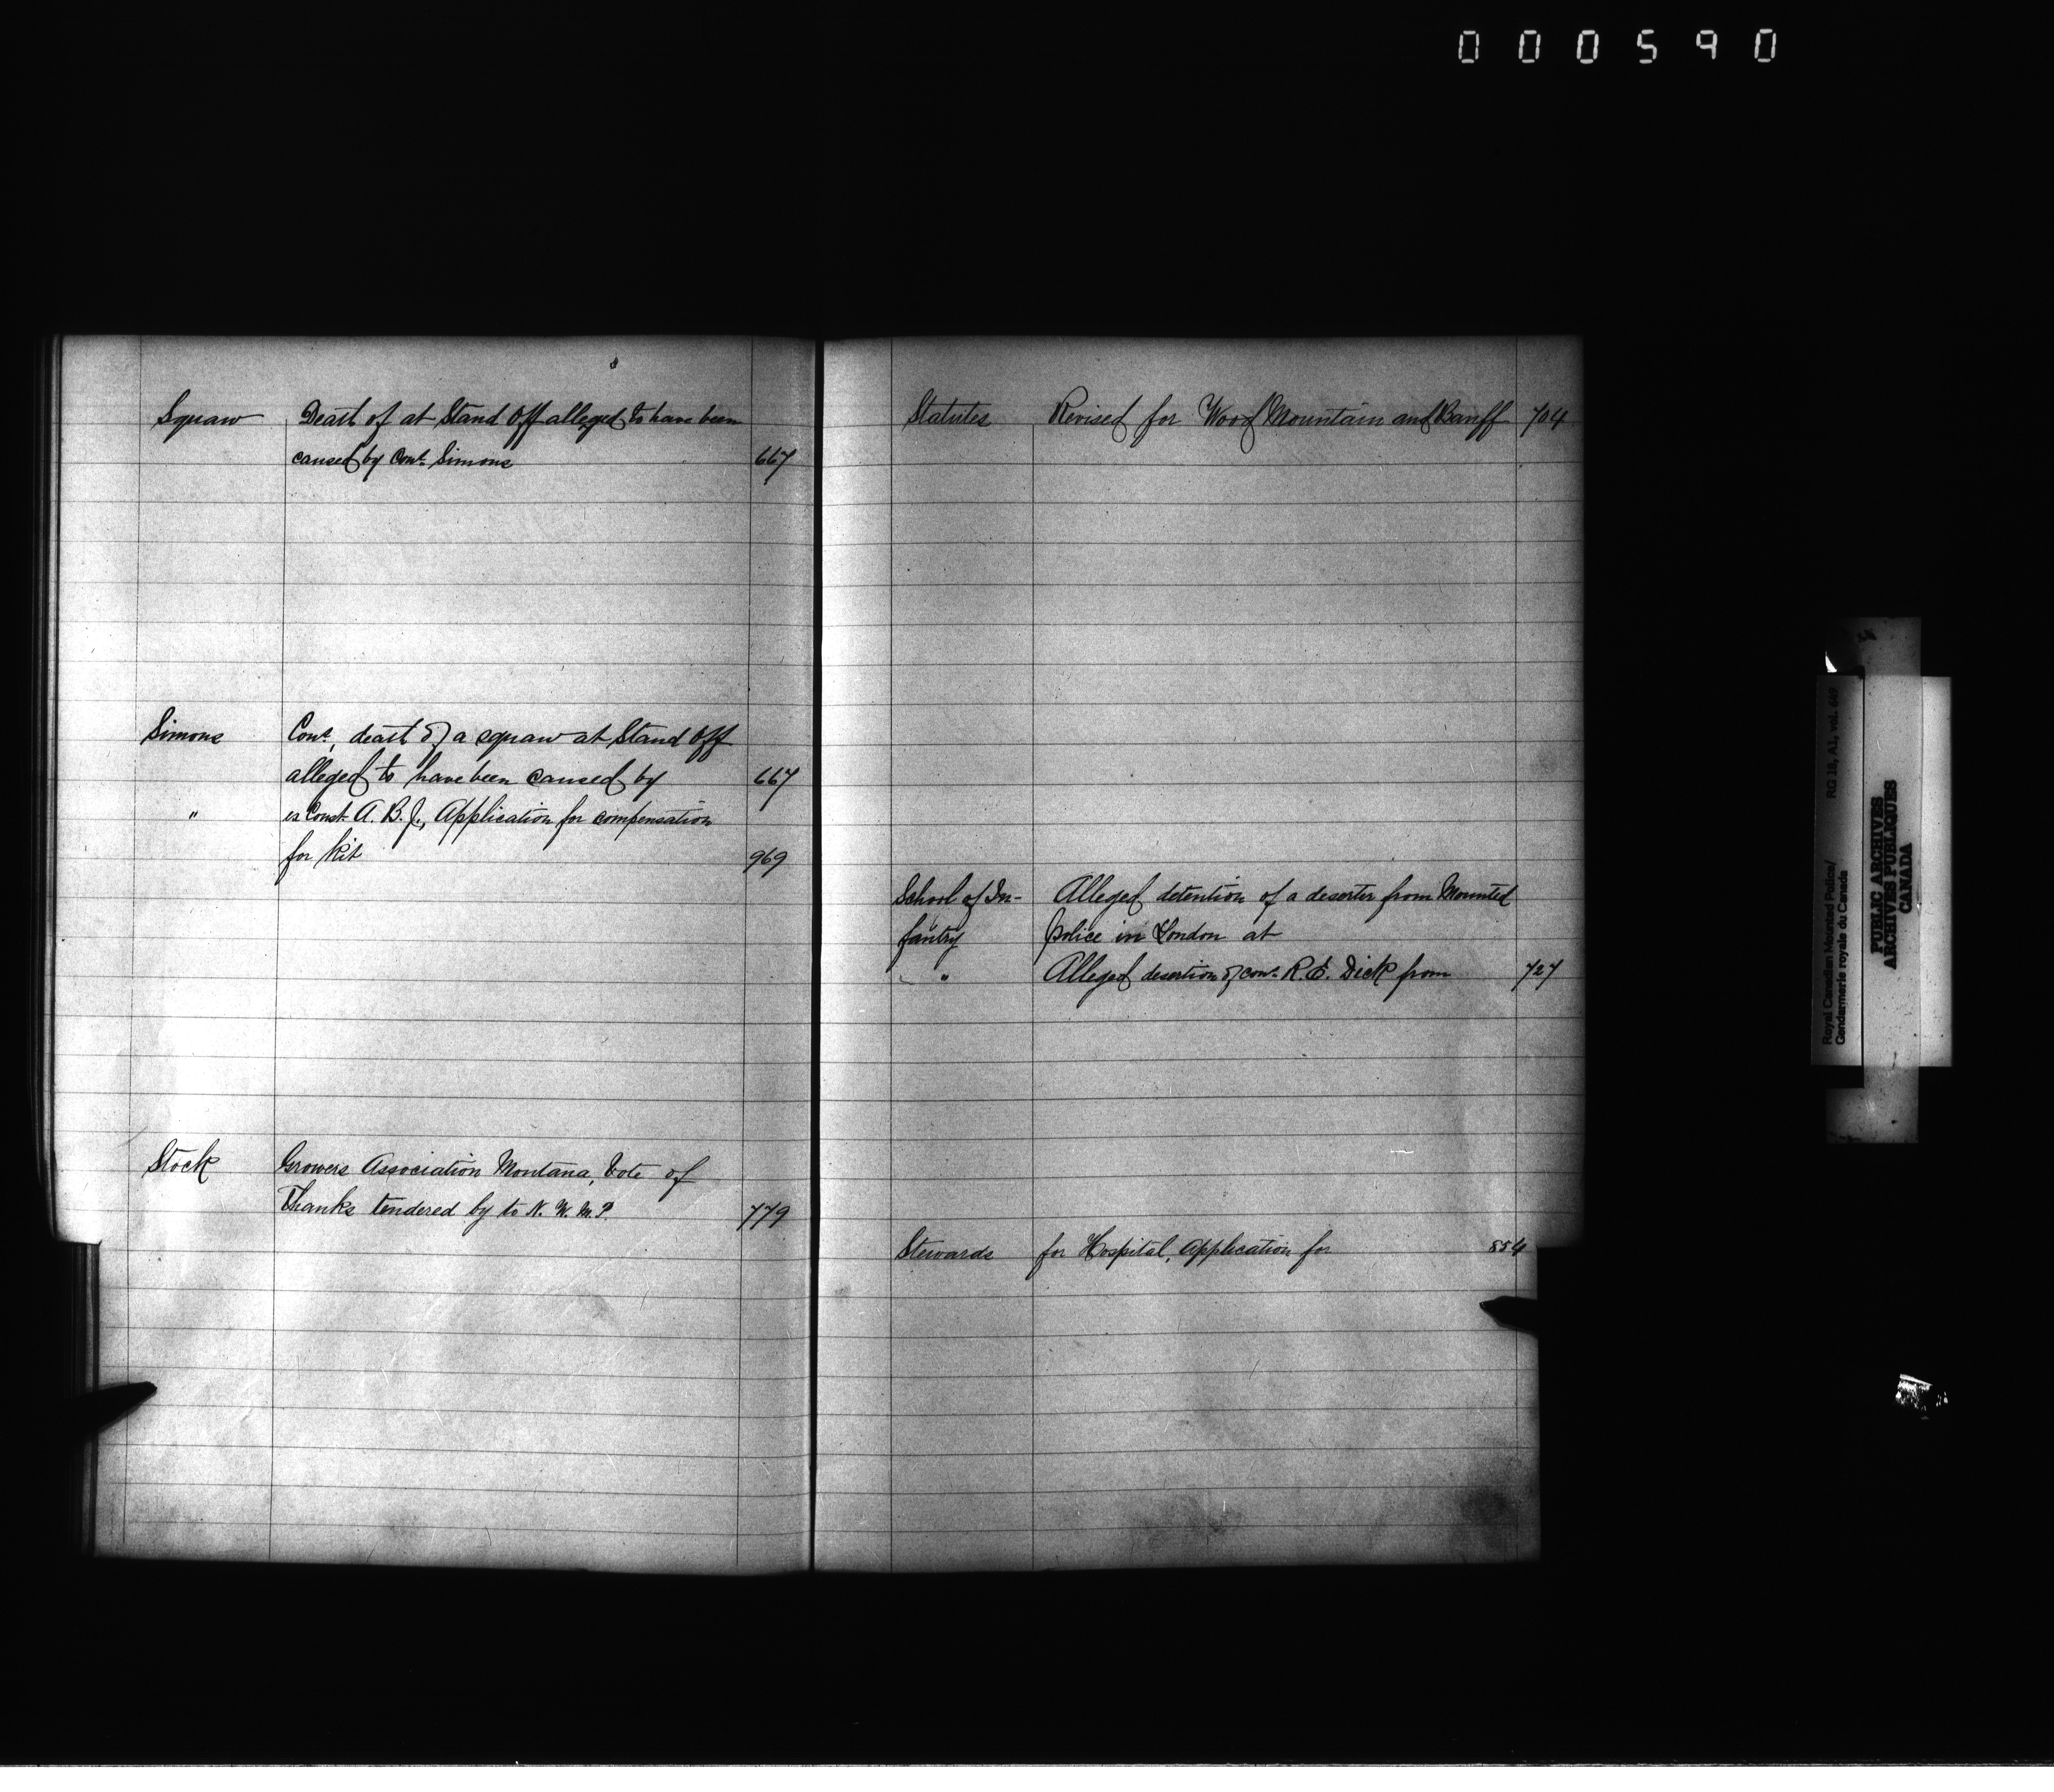 000590
Squaw Death of at Stand Off alleged to have been
caused by Const. Simons 667
Simons Const., death of a squaw at Stand Off
alleged to have been caused by 667
" ex Const. A. B. J., Application for compensation
for kit 969
Stock Growers Association Montana, Vote of
Thanks tendered by to N. W. M. P. 779
Statutes Revised for Wood Mountain and Banff 704
School of In- Alleged detention of a deserter from Mounted
fantry Police in London at
" Alleged desertion of Const. R. E. Dick from 727
Stewards for Hospital, Application for 854
Royal Canadian Mounted Police/ RG 18, A1, vol.
Gendarmerie royale du Canada
PUBLIC ARCHIVES
ARCHIVES PUBLIQUES
CANADA